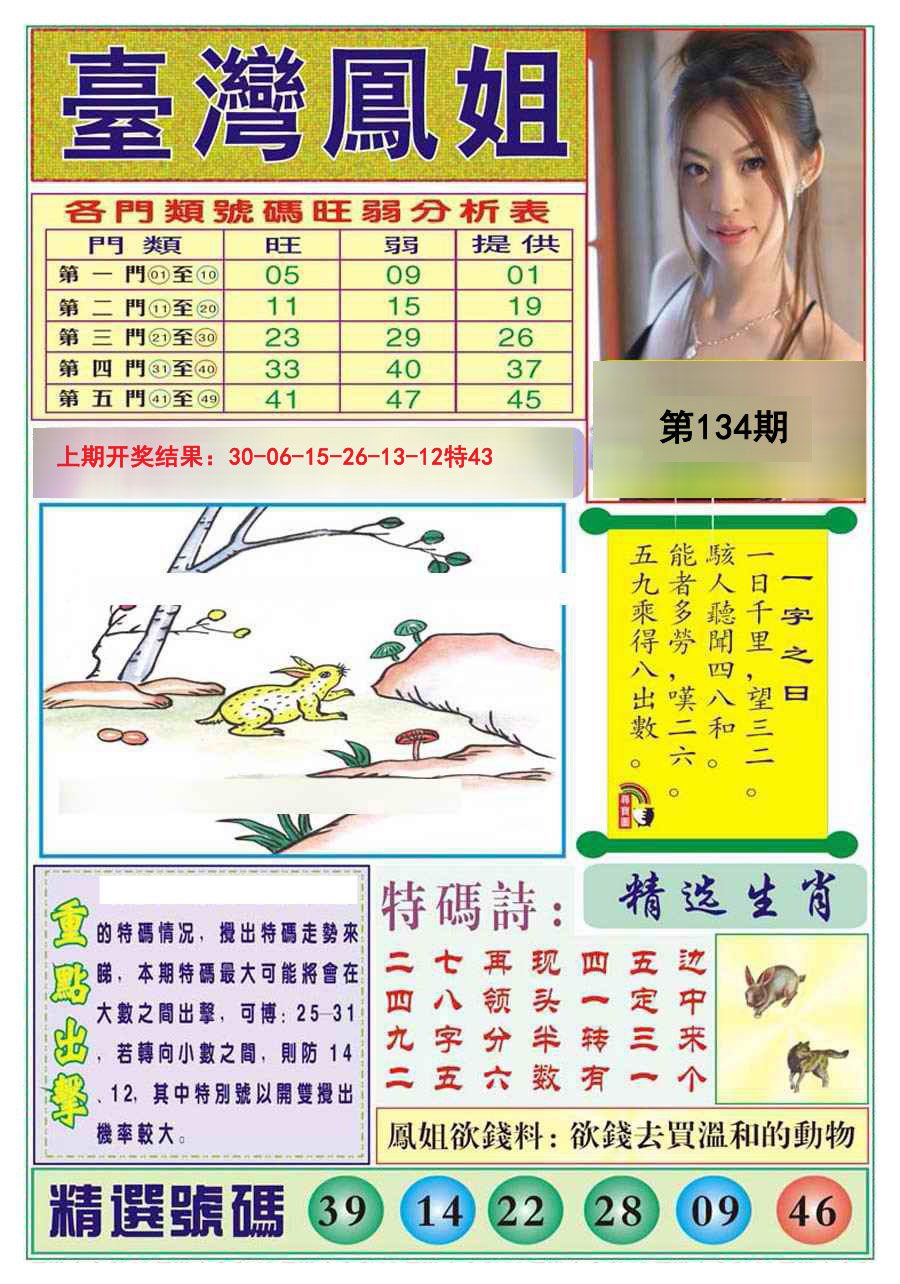 臺灣鳳姐
各門類號碼旺弱分析表
門類 旺 弱 提供
第一門01至10 05 09 01
第二門11至20 11 15 19
第三門21至30 23 29 26
第四門31至40 33 40 37
第五門41至49 41 47 45
第134期
上期开奖结果：30-06-15-26-13-12特43
一字之曰
一日千里，望三二。
駭人聽聞四八和。
能者多勞，嘆二六。
五九乘得八出數。
尋寶圖
重點出擊
的特碼情况，攪出特碼走勢來
睇，本期特碼最大可能將會在
大數之間出擊，可博：25—31
，若轉向小數之間，則防 14
、12，其中特別號以開雙攪出
機率較大。
特碼詩：
二七再现四五边
四八领头一定中
九字分半转三来
二五六数有一个
精选生肖
鳳姐欲錢料：欲錢去買溫和的動物
精選號碼 39 14 22 28 09 46